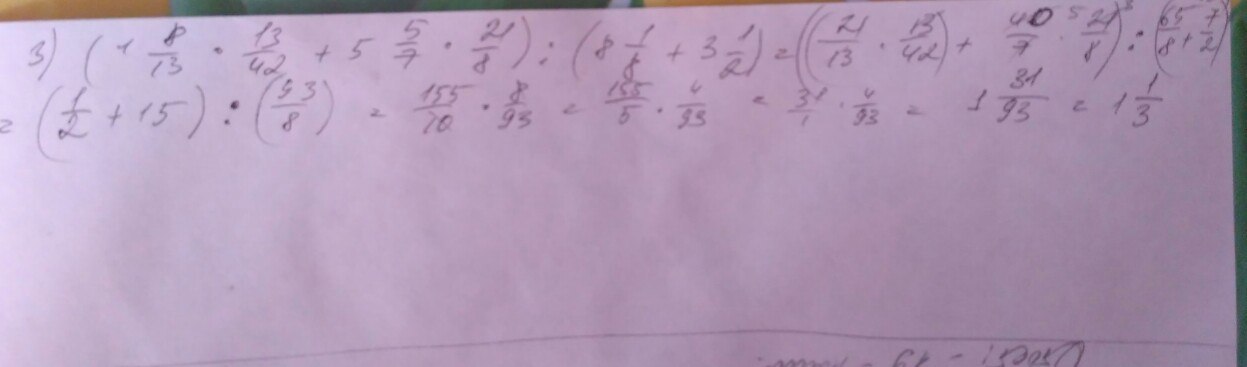 3) (1 8/13 · 13/42 + 5 5/7 · 21/8) : (8 1/8 + 3 1/2) = ((21/13 · 13/42) + 40/7 · 5 21/8 3) : (65/8 + 7/2)
= (1/2 + 15) : (93/8) = 155/10 · 8/93 = 155/5 · 4/93 = 31/1 · 4/93 = 1 31/93 = 1 1/3